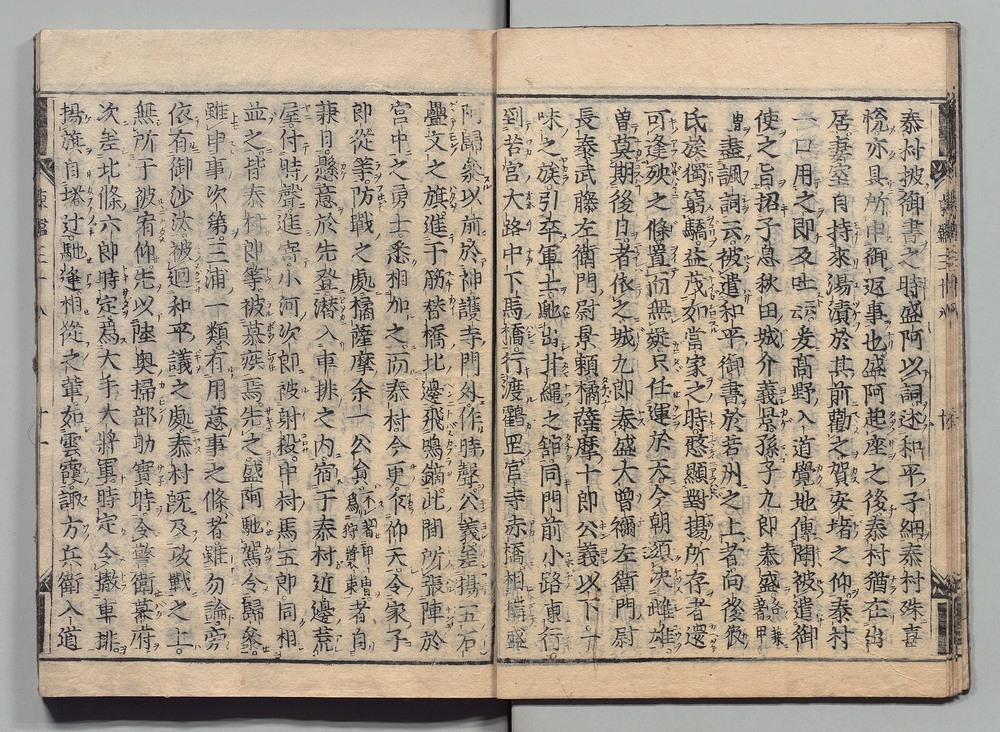 泰村披御書之時盛阿以詞述和平子細泰村殊喜
悦亦具所申御返事也盛阿起座之後泰村猶在出
居妻室自持來湯漬於其前勸之賀安堵之仰泰村
一口用之即及吐云云爰高野入道覺地傳聞被遣御
使之旨招子息秋田城介義景孫子九郎泰盛各兼著甲
冑盡諷詞云被遣和平御書於若州之上者向後彼
氏族獨窮驕益茂如當家之時憖顯對揚所存者還
可逢殃之條置而無疑只任運於天今朝須決雌雄
曽莫期後日者依之城九郎泰盛大曽禰左衛門尉
長泰武藤左衛門尉景頼橘薩摩十郎公義以下一
味之族引卒軍士馳出甘繩之舘同門前小路東行
到若宮大路中下馬橋行度鶴岡宮寺赤橋相構盛
阿歸參以前於神護寺門外作時聲公義差揚五石
疊文之旗進于筋替橋北邊飛鳴鏑此間所張陣於
宮中之勇士悉相加之而泰村今更乍仰天令家子
郎從等防戰之處橘薩摩余一公員不著甲冑為狩装束者自
兼日懸意於先登潜入車排之内宿于泰村近邊荒
屋付時聲進寄小河次郎被射殺中村馬五郎同相
並之皆泰村郎等被慕疾焉先之盛阿馳駕令歸參
雖申事次第三浦一類有用意事之條者雖勿論旁
依有御沙汰被廻和平議之處泰村既及攻戰之上
無所于被宥仰先以陸奥掃部助實時令警衛幕府
次差北條六郎時定為大手大將軍時定令撤車排
揚旗自塔辻馳逢相從之輩如雲霞諏方兵衛入道
東鑑三十八 十一